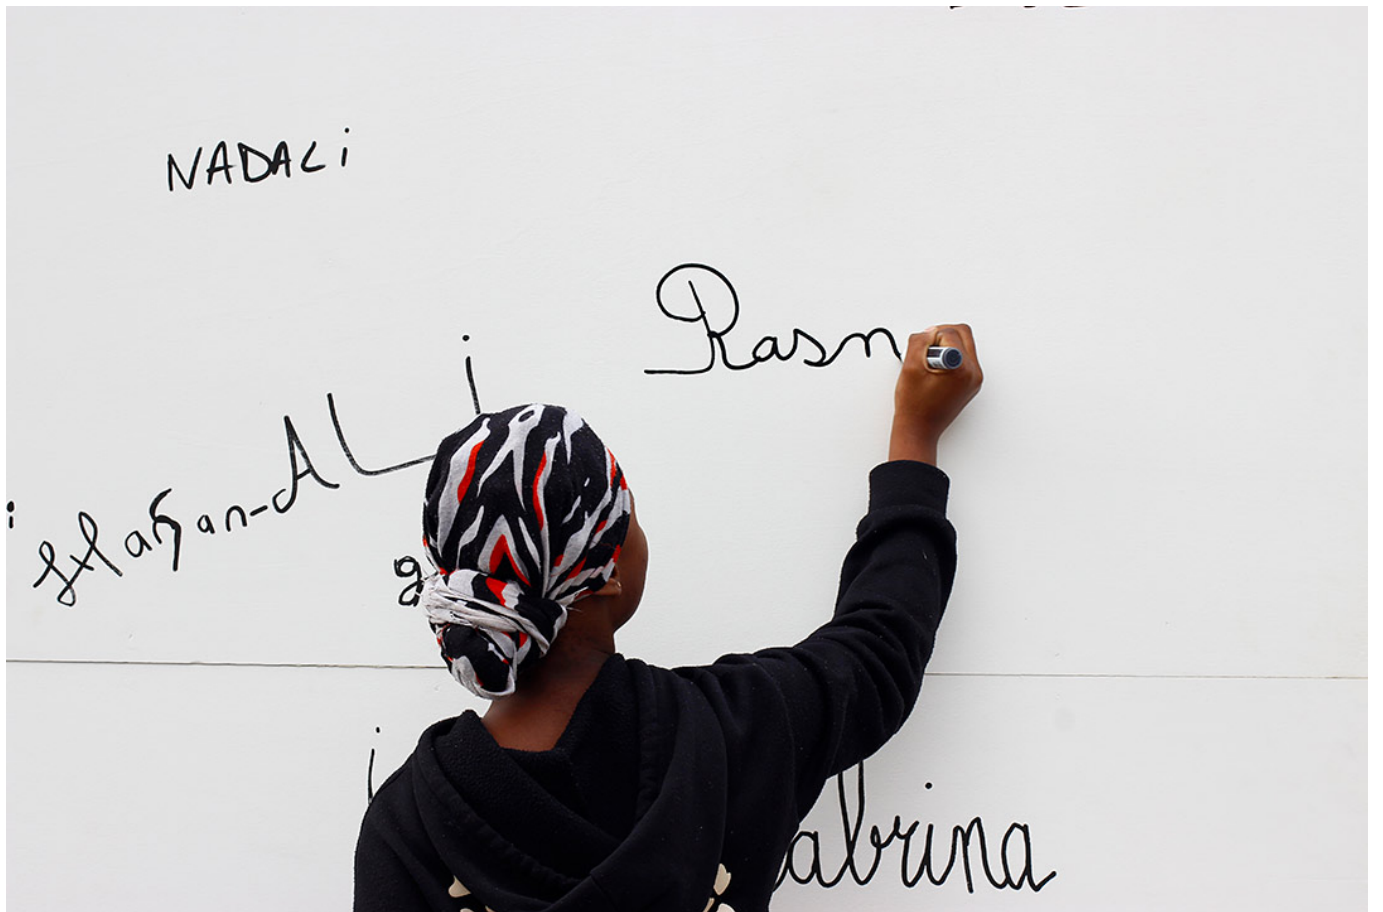 NADALi
Rasn
Hassan-ALi
abrina